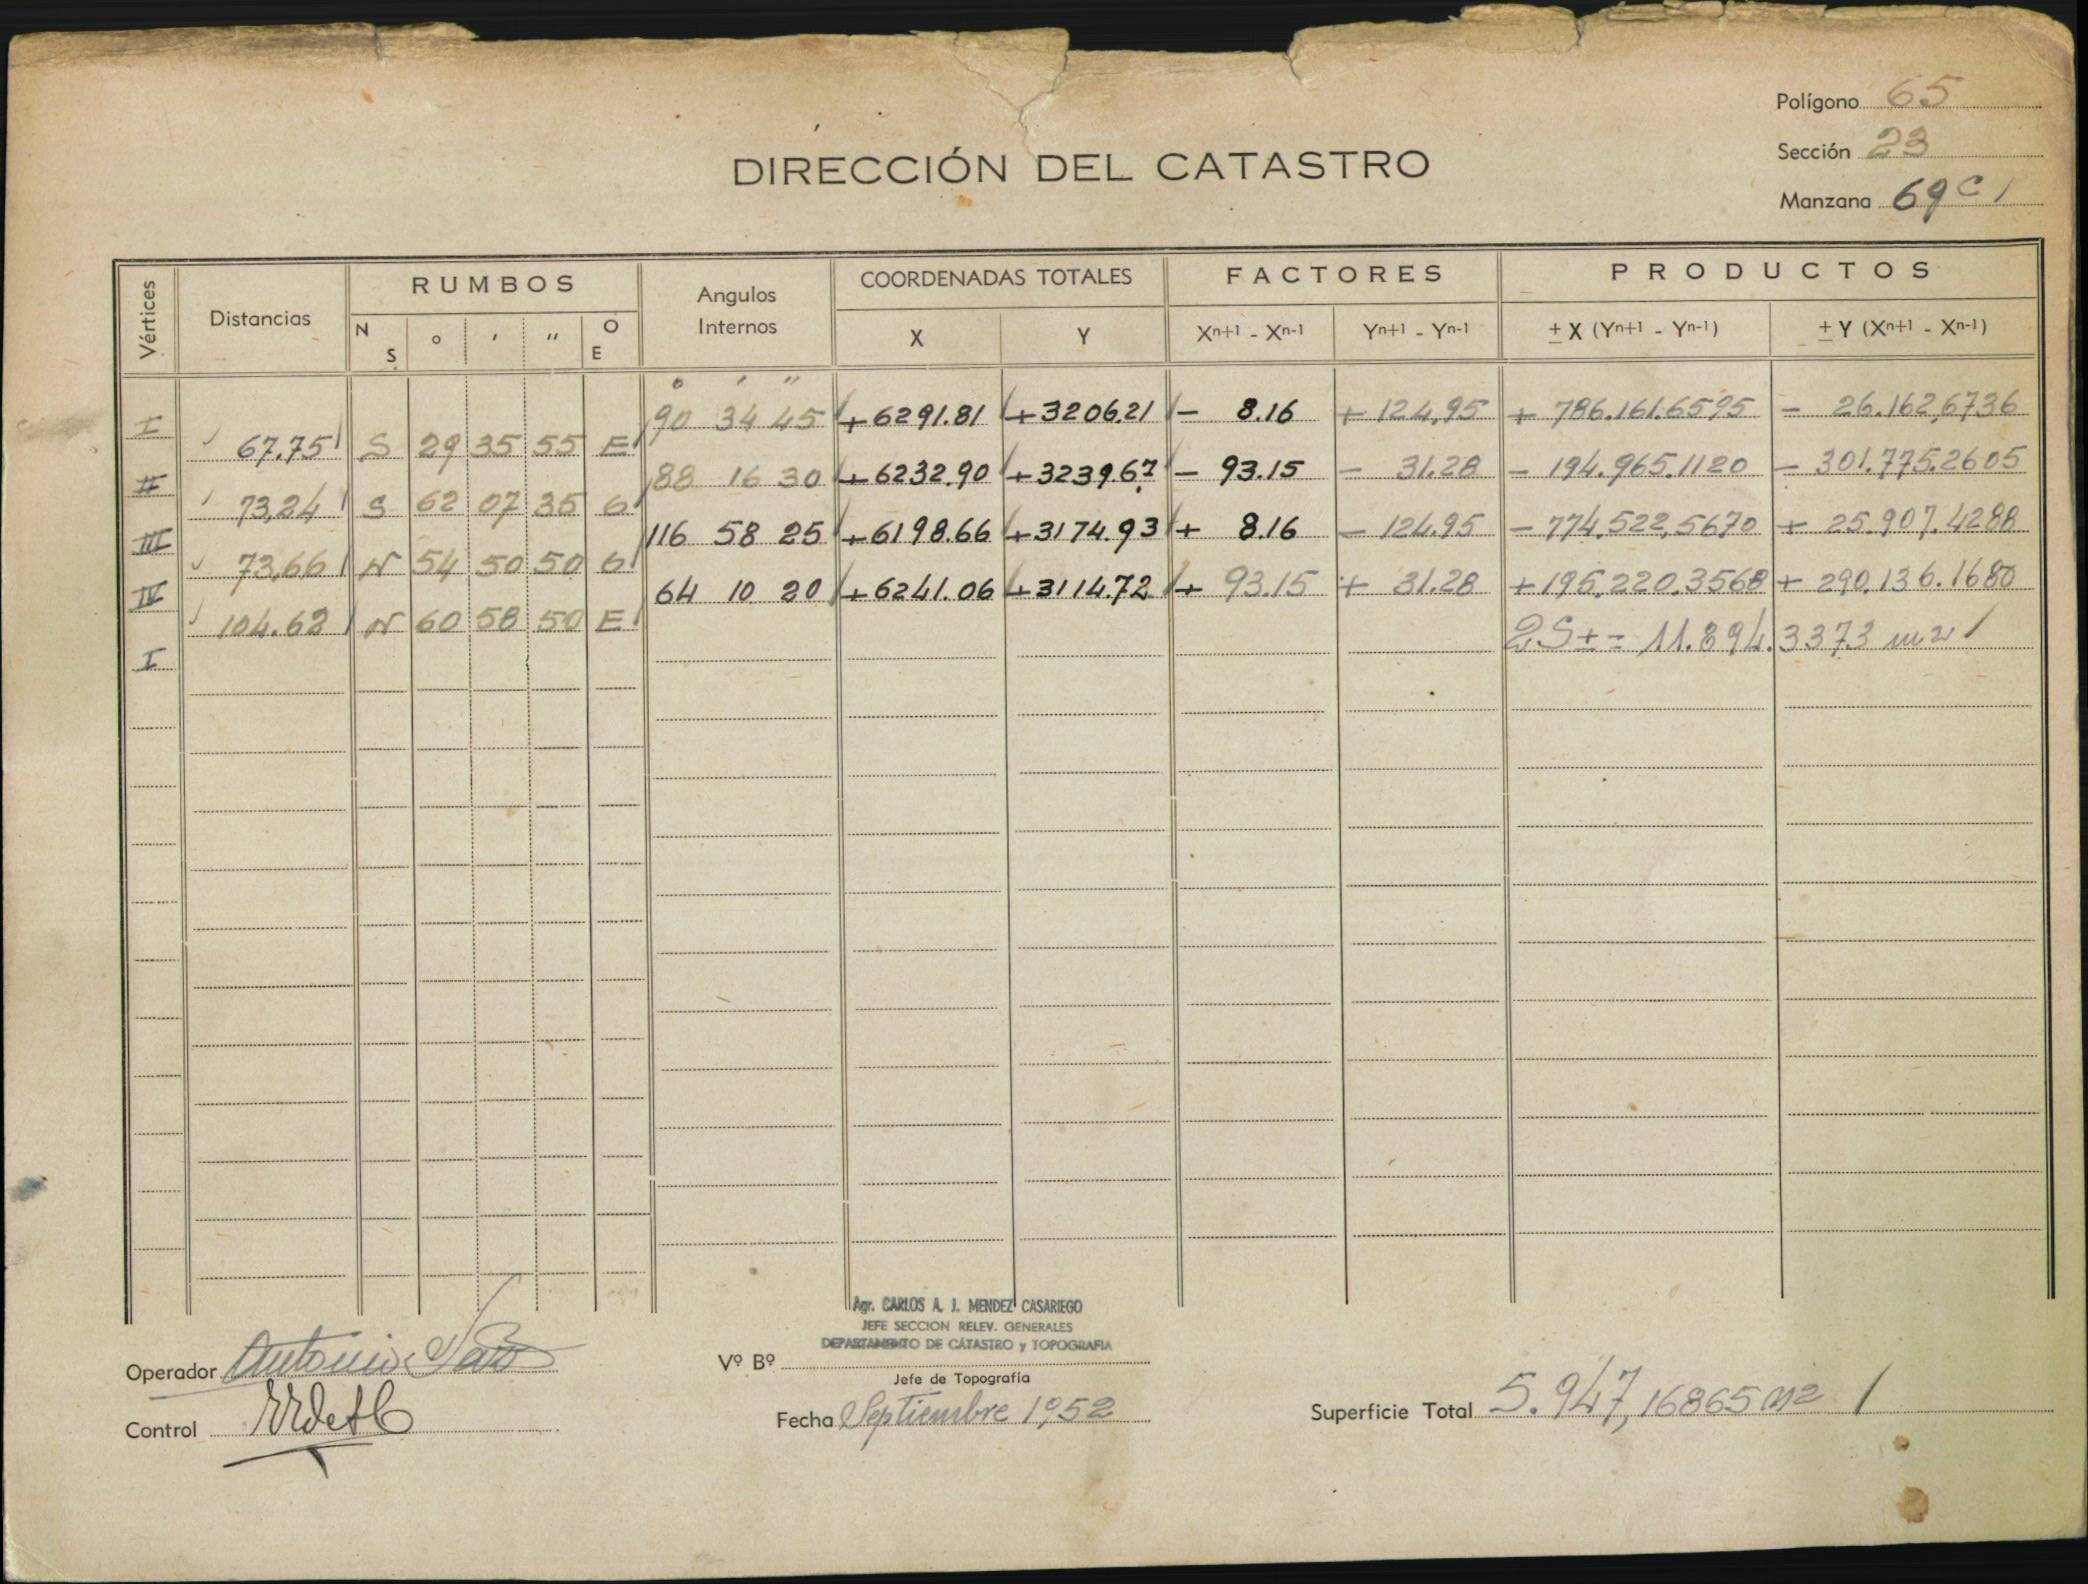 Polígono 65
Sección 23
Manzana 69 C
DIRECCIÓN DEL CATASTRO
Vértices Distancias RUMBOS Angulos Internos COORDENADAS TOTALES FACTORES PRODUCTOS
N S ° ' " O E X Y Xn+1 - Xn-1 Yn+1 - Yn-1 ± X (Yn+1 - Yn-1) ± Y (Xn+1 - Xn-1)
° ' "
I 90 34 45 + 6291.81 + 3206.21 - 8.16 + 124.95 + 786.161.6595 - 26.162,6736
67.75 S 29 35 55 E
II 88 16 30 + 6232.90 + 3239.67 - 93.15 - 31.28 - 194.965.1120 - 301.775.2605
73,24 S 62 07 35 O
III 116 58 25 + 6198.66 + 3174.93 + 8.16 - 124.95 - 774.522,5670 + 25.907.4288
73,66 N 54 50 50 O
IV 64 10 20 + 6241.06 + 3114.72 + 93.15 + 31.28 + 195.220.3568 + 290.136.1680
104.62 N 60 58 50 E
2S ± = 11.894.3373 m2
I
Agr. CARLOS A. J. MENDEZ CASARIEGO
JEFE SECCION RELEV. GENERALES
DEPARTAMENTO DE CATASTRO y TOPOGRAFIA
Operador Antonio
Vº Bº
Jefe de Topografía
Control
Fecha Septiembre 1952
Superficie Total 5.947,16865 m2